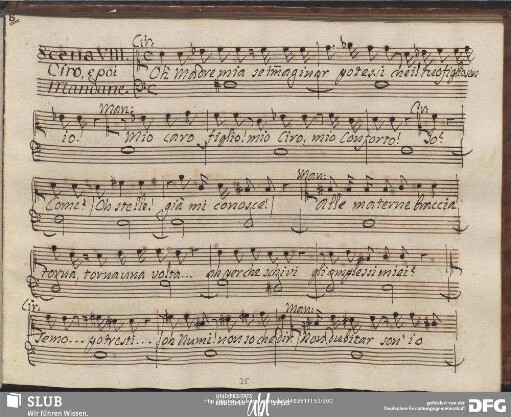 Cir:
Scena VIII.
Ciro, e poi
Mandane.
Oh Madre mia se immaginar potessi che il tuo figlio son
Man: Cir:
io! Mio caro figlio! mio Ciro, mio Conforto! Io?
Man:
Come? Oh stelle! già mi conosce! Alle materne braccia
torna, torna una volta... ah perche schivi gli amplessi miei?
Cir: Man:
Temo... potresti... oh Numi! non so che dir Non dubitar son' io
25
SLUB
Wir führen Wissen.
UNIVERSITÄTS
gefördert von der
Deutschen Forschungsgemeinschaft
DFG